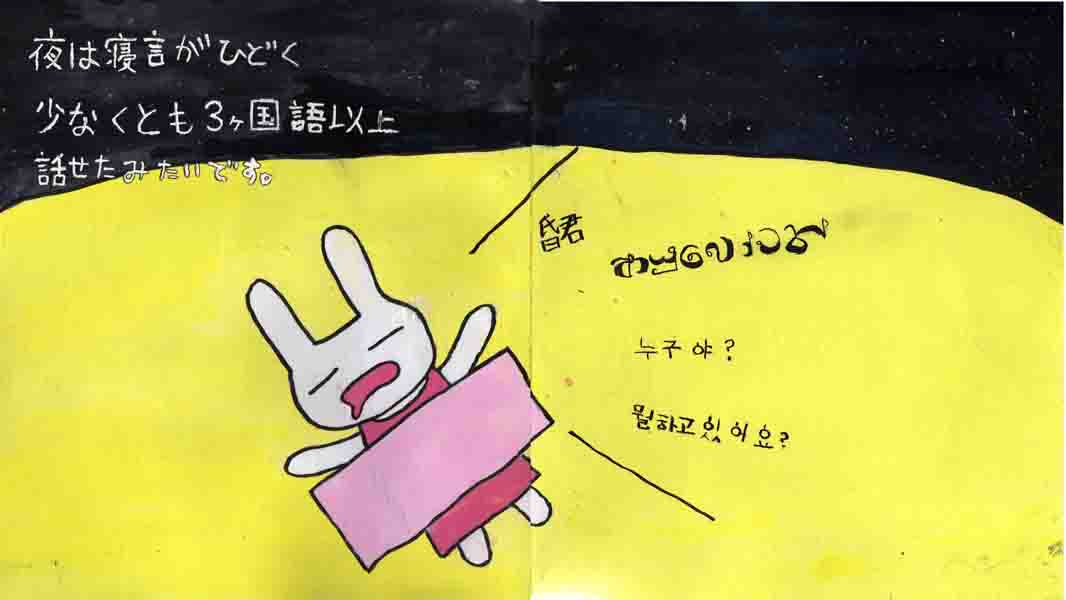 夜は寝言がひどく
少なくとも3ヶ国語以上
話せたみたいです。
昏君
누구야?
뭘하고있어요?